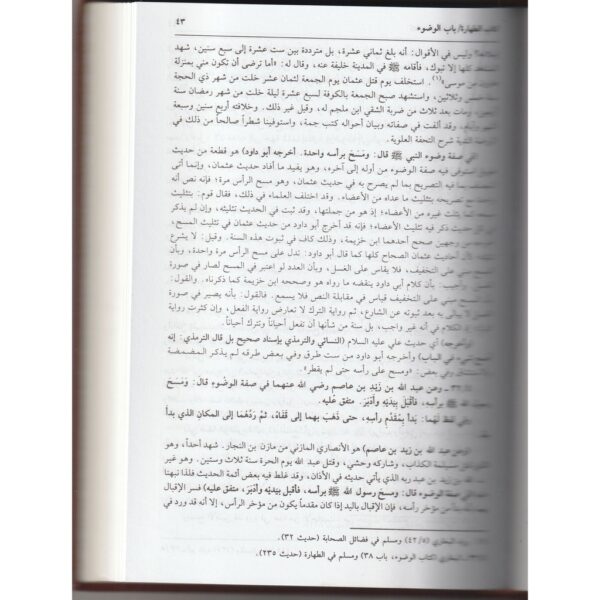 كتاب الطهارة/ باب الوضوء ٤٣
وليس في الأقوال: أنه بلغ ثماني عشرة، بل مترددة بين ست عشرة إلى سبع سنين، شهد
كلها إلا تبوك، فأقامه ﷺ في المدينة خليفة عنه، وقال له: «أما ترضى أن تكون مني بمنزلة
من موسى»(١). استخلف يوم قتل عثمان يوم الجمعة لثمان عشر خلت من شهر ذي الحجة
وثلاثين، واستشهد صبح الجمعة بالكوفة لسبع عشرة ليلة خلت من شهر رمضان سنة
ومات بعد ثلاث من ضربة الشقي ابن ملجم له، وقيل غير ذلك. وخلافته أربع سنين وسبعة
وقد ألفت في صفاته وبيان أحواله كتب جمة، واستوفينا شطراً صالحاً من ذلك في
شرح التحفة العلوية.
(في صفة وضوء النبي ﷺ قال: ومَسَحَ برأسه واحدة. أخرجه أبو داود) هو قطعة من حديث
استوفى فيه صفة الوضوء من أوله إلى آخره، وهو يفيد ما أفاد حديث عثمان، وإنما أتى
بما فيه التصريح بما لم يصرح به في حديث عثمان، وهو مسح الرأس مرة؛ فإنه نص أنه
مع تصريحه بتثليث ما عداه من الأعضاء. وقد اختلف العلماء في ذلك، فقال قوم: بتثليث
كما يثلث غيره من الأعضاء؛ إذ هو من جملتها، وقد ثبت في الحديث تثليثه، وإن لم يذكر
حديث ذكر فيه تثليث الأعضاء؛ فإنه قد أخرج أبو داود من حديث عثمان في تثليث المسح،
من وجهين صحح أحدهما ابن خزيمة، وذلك كاف في ثبوت هذه السنة. وقيل: لا يشرع
أحاديث عثمان الصحاح كلها كما قال أبو داود: تدل على مسح الرأس مرة واحدة، وبأن
مبني على التخفيف، فلا يقاس على الغسل، وبأن العدد لو اعتبر في المسح لصار في صورة
وأجيب: بأن كلام أبي داود ينقضه ما رواه هو وصححه ابن خزيمة كما ذكرناه. والقول:
المسح مبني على التخفيف قياس في مقابلة النص فلا يسمع. فالقول: بأنه يصير في صورة
لا يبالى به بعد ثبوته عن الشارع، ثم رواية الترك لا تعارض رواية الفعل، وإن كثرت رواية
إذ الكلام في أنه غير واجب، بل سنة من شأنها أن تفعل أحياناً وتترك أحياناً.
(وأخرجه) أي حديث علي عليه السلام (النسائي والترمذي بإسناد صحيح بل قال الترمذي: إنه
شيء في الباب) وأخرجه أبو داود من ست طرق وفي بعض طرقه لم يذكر المضمضة
والاستنشاق وفي بعض: «ومسح على رأسه حتى لم يقطر».
٣٢/٥ - وعن عبد الله بن زَيْد بن عاصم رضي الله عنهما في صفة الوضُوءِ قالَ: وَمَسَحَ
ﷺ برأسِهِ، فَأَقْبَلَ بِيَدَيْهِ وَأَدْبَرَ. متفق عليه.
وفي لفظ لَهُما: بَدَأَ بِمُقَدَّمِ رأسِهِ، حتى ذَهَبَ بهما إلى قَفَاهُ، ثمَّ رَدَّهُما إلى المكانِ الذي بدأ
(وعن عبد الله بن زيد بن عاصم) هو الأنصاري المازني من مازن بن النجار. شهد أحداً، وهو
مسيلمة الكذاب، وشاركه وحشي، وقتل عبد الله يوم الحرة سنة ثلاث وستين. وهو غير
بن زيد بن عبد ربه الذي يأتي حديثه في الأذان، وقد غلط فيه بعض أئمة الحديث فلذا نبهنا
صفة الوضوء قال: ومسح رسول الله ﷺ برأسه، فأقبل بيديه وأدبَرَ، متفق عليه) فسر الإقبال
من مؤخر رأسه، فإن الإقبال باليد إذا كان مقدماً يكون من مؤخر الرأس، إلا أنه قد ورد في
البخاري (٤٢/٥) ومسلم في فضائل الصحابة (حديث ٣٢).
البخاري (كتاب الوضوء، باب ٣٨) ومسلم في الطهارة (حديث ٢٣٥).